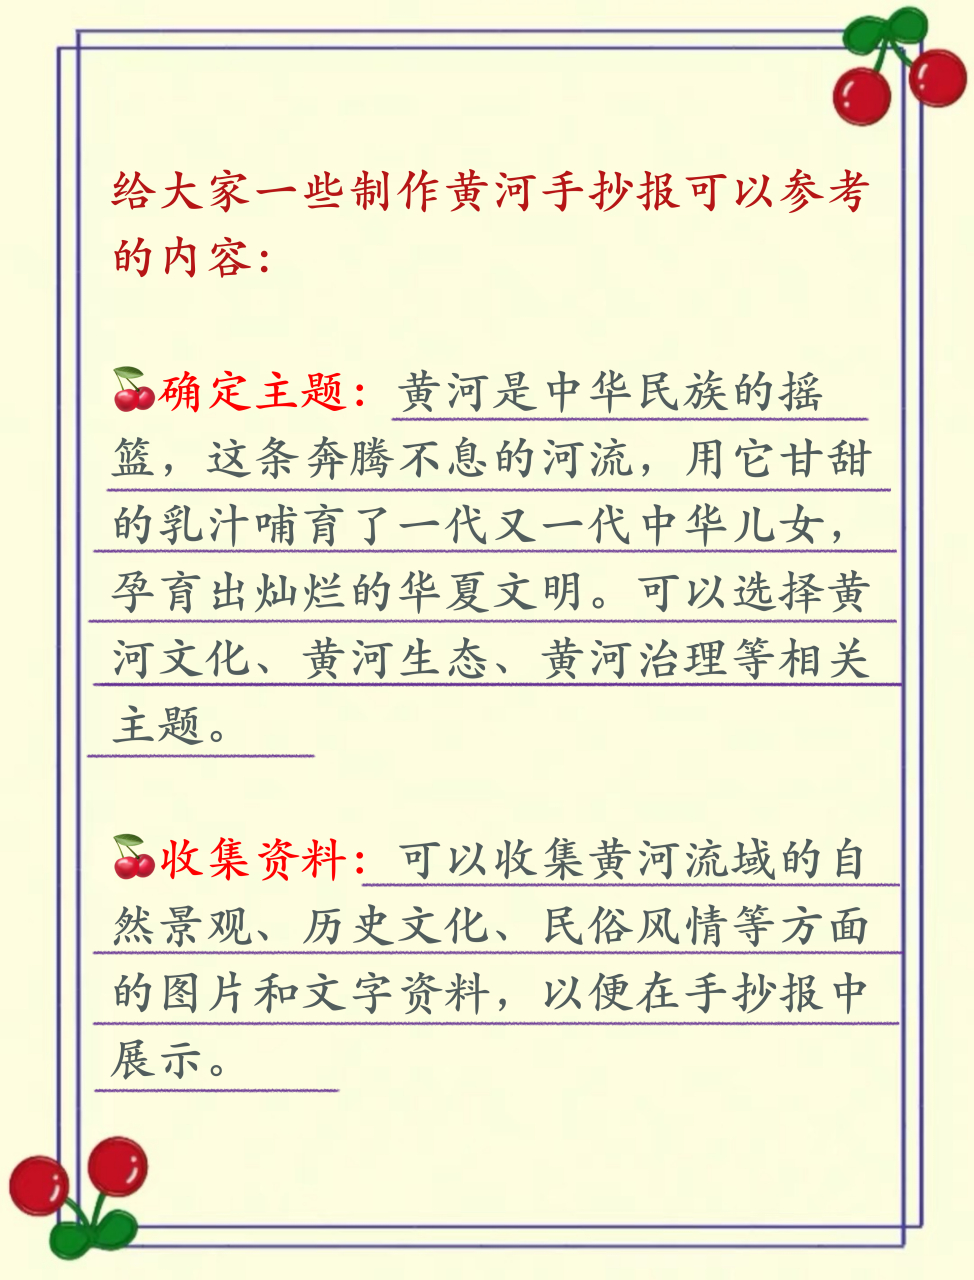 给大家一些制作黄河手抄报可以参考
的内容：
确定主题：黄河是中华民族的摇
篮，这条奔腾不息的河流，用它甘甜
的乳汁哺育了一代又一代中华儿女，
孕育出灿烂的华夏文明。可以选择黄
河文化、黄河生态、黄河治理等相关
主题。
收集资料：可以收集黄河流域的自
然景观、历史文化、民俗风情等方面
的图片和文字资料，以便在手抄报中
展示。